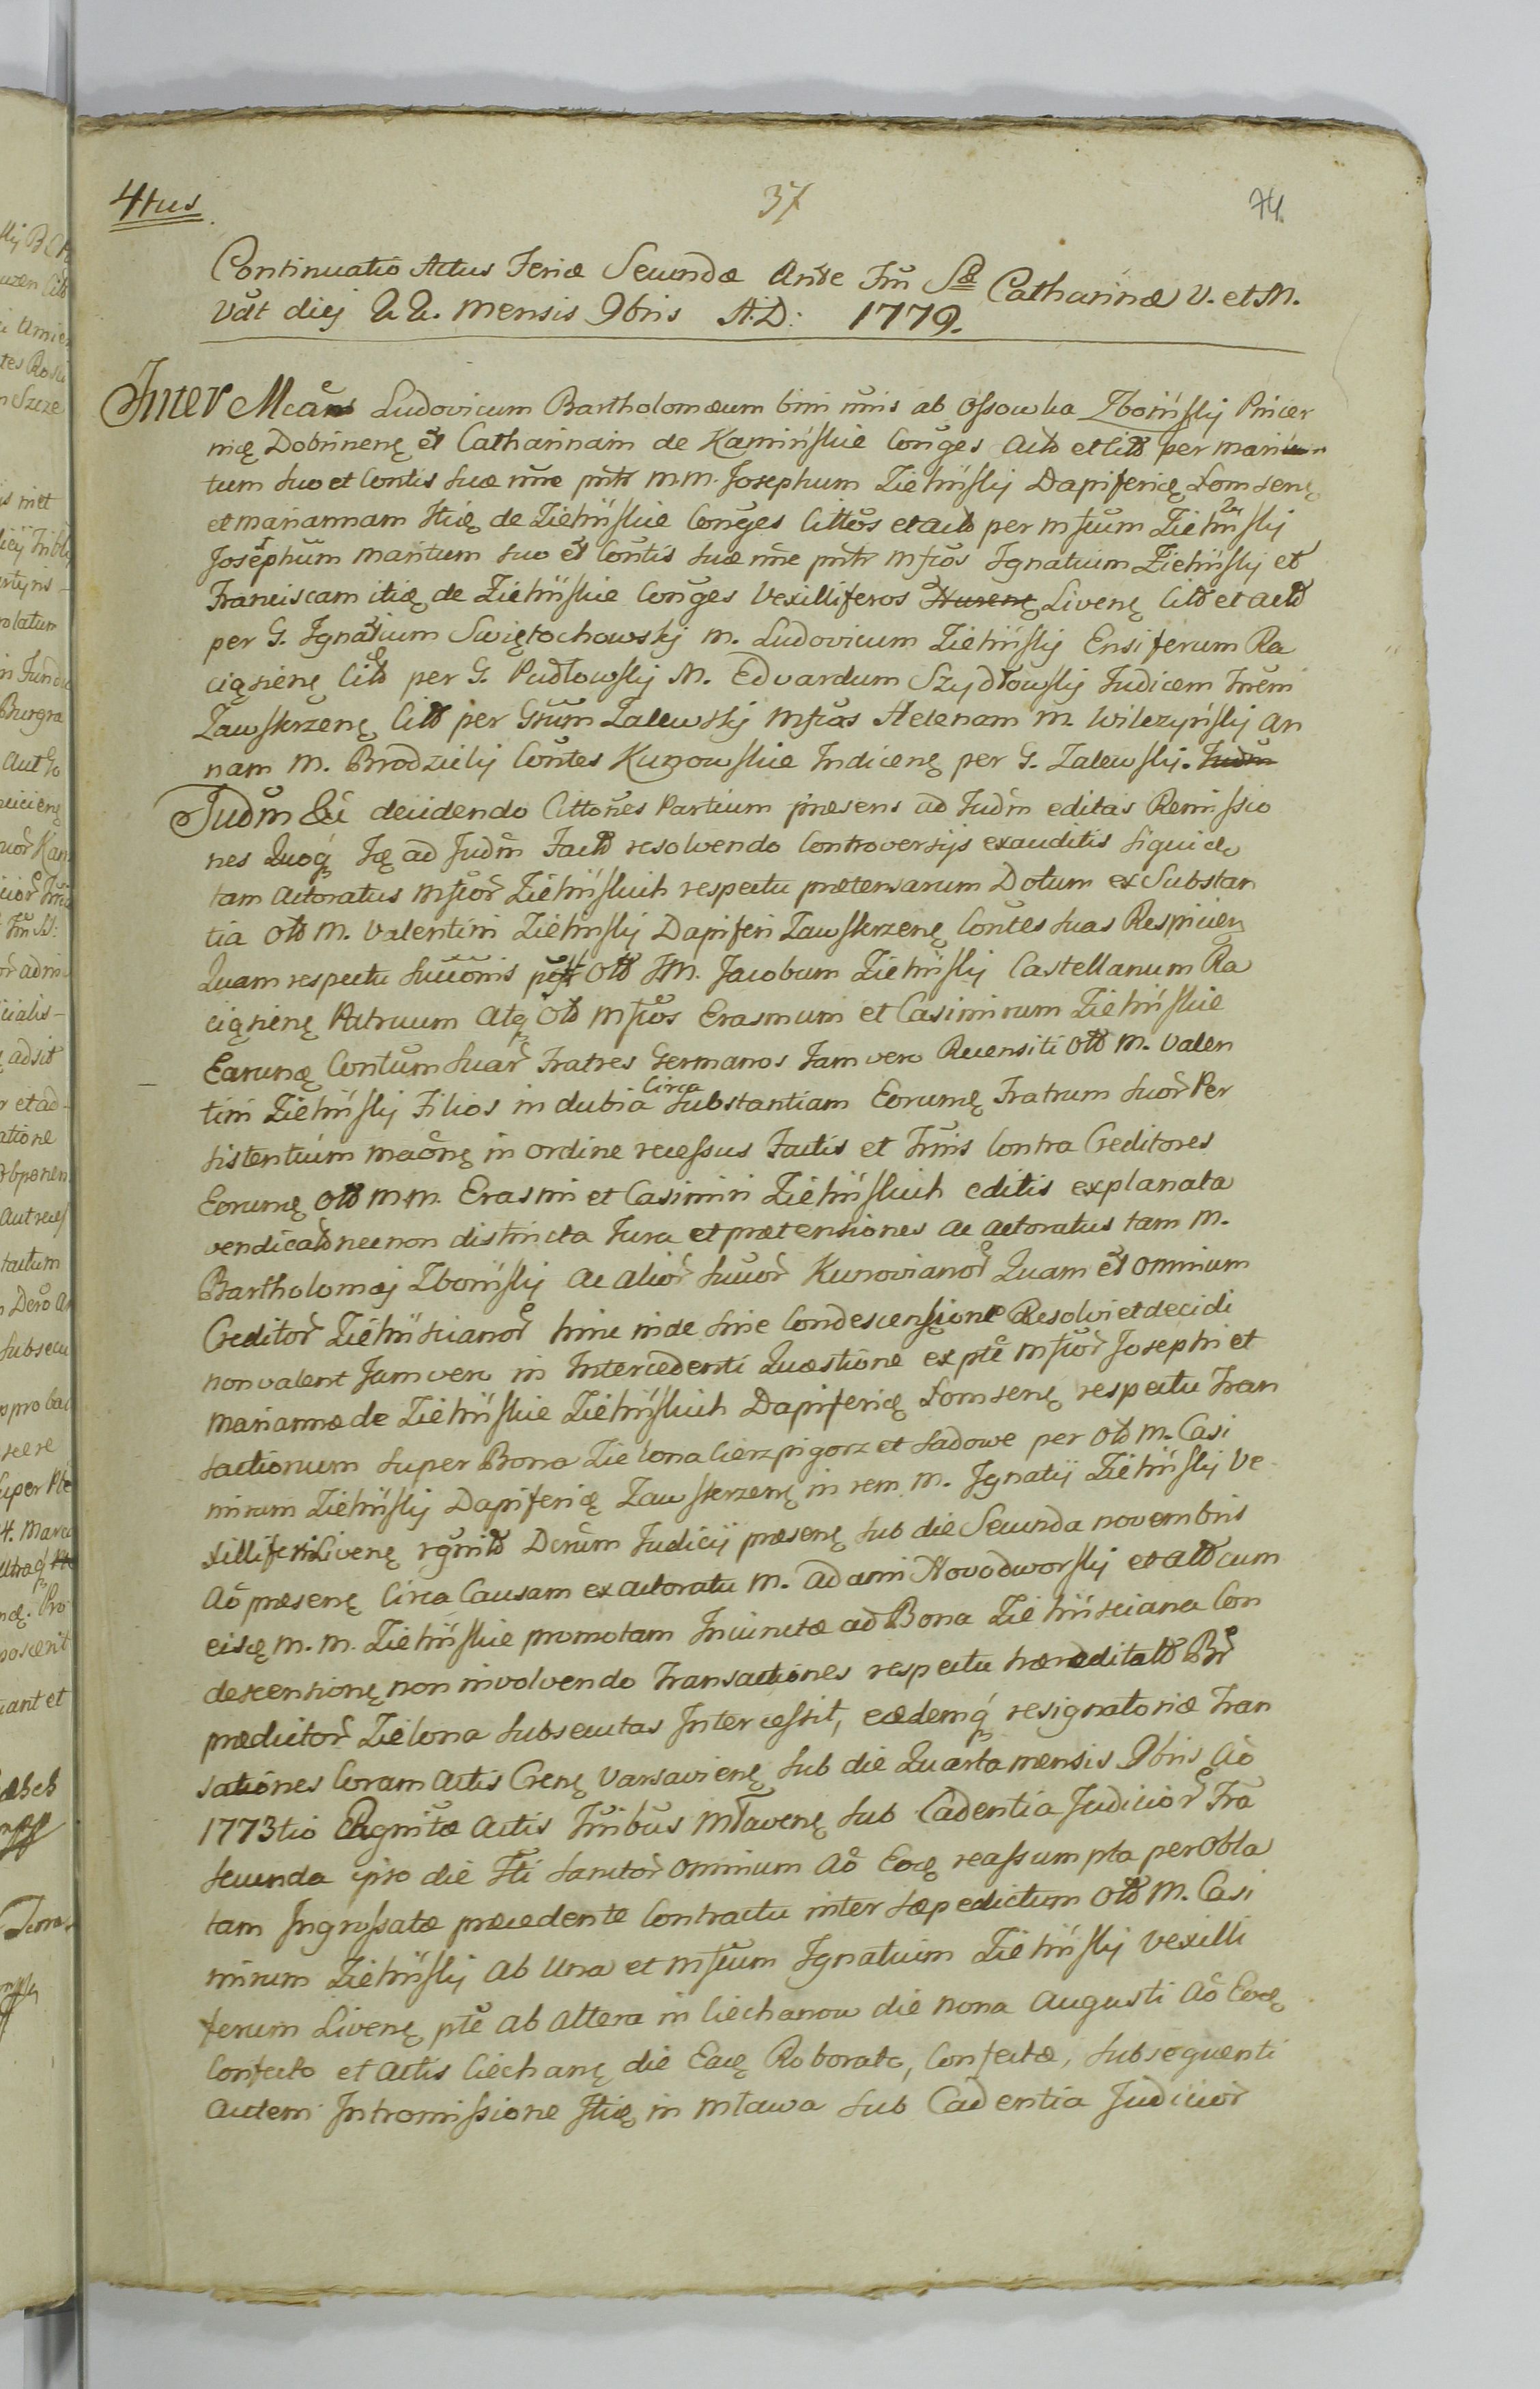 4tus
37
74.
Continuatio Actus Feriæ Secundæ Ante Fm S Catharinæ V. et M.
Vdt diej 22. Mensis 9bris A. D: 1779.
Inter Mcos Ludovicum Bartholomæum bini nnis ab Ossowka Zboiński Pincer
nię Dobrinenę et Catharinam de Kamińskie Conges Acto et Citto per mari
tum suo et Contis suæ nne pntr M.M. Josephum Zieliński Dapiferię Lomsenę
et Mariannam Itię de Zielińskie Conges Cittos et acto per Mfcum Zieliński
Josephum Maritum suo et Contis suæ nne pntr Mfcos Ignatium Zieliński et
Franciscam itię de Zielińskie Conges Vexilliferos Livenę Citto et acto
per G. Ignatium Swiętochowski M. Ludovicum Zieliński Ensiferum Ra
ciąsenę Citto per G. Pudłowski M. Edvardum Szydłowski Judicem Trrem
Zawskrzenę Citto per Gsum Zalewski Mfcas Helenam M. Wilczyński An
nam M. Brodzicki Contes Kunowskie Indicenę per G. Zalewski. Judm
Judm decidendo Cittones Partium præsens ad Judm editas Remissio
nes Quoq ad Judm Facto resolvendo Controversijs exauditis siquidę
tam actoratus Mfcor Zielińskich respectu prætensarum Dotum ex Substan
tia Olto M. Valentini Zieliński Dapiferi Zawskrzenę Contes suas Respicien
Quam respectu Succonis post Olto M. Jacobum Zieliński Castellanum Ra
ciąsenę Patruum Atq Olto Mfcos Erasmum et Casimirum Zielińskie
Earunę Contum suar Fratres Germanos Jam vero Recensiti Olto M. Valen
tini Zieliński Filios in dubia Circa Substantiam Eorumę Fratrum suor Per
sistentium in ordine recessus Factis et Trnis Contra Creditores
Eorumę Olto M.M. Erasmi et Casimiri Zielińskich editis explanata
vendicato necnon distincta Jura et prætensiones ac actoratus tam M.
Bartholomæj Zboiński ac alior Succor Kunovianor Quam et omnium
Creditor Zielinscianor hinc inde sine Condescensione Resolvi et decidi
non valent Jam vero in Intercedenti Quæstione ex pte Mfcor Josephi et
Mariannæ de Zielińskie Zielińskich Dapiferię Lomsenę respectu Tran
sactionum super Bona Zielona Cierzpigorz et Sadowe per Olto M. Casi
mirum Zieliński Dapiferię Zawskrzenę in rem M. Ignatij Zieliński Ve
xilliferi Livenę rgnito Dcrum Judicij præsenę sub die Secunda novembris
Ao præsenę Circa Causam ex actoratu M. Adami Nowodworski et alto cum
eisdę M.M. Zielińskie promotam Iniunctæ ad Bona Zielinsciana Con
descensionę non involvendo Transactiones respectu hæreditato Br
prædictor Zielona subsecutas Intercessit, eædemq resignatoriæ Tran
satiónes Coram Actis Crenę Varsavienę sub die Quarta mensis 9bris Ao
1773tio Rgnitæ Actis Trribus Mlavenę sub Cadentia Judicior Fra
secunda ipso die Fti Sanctor Omnium Ao Eodę reassumpta per Obla
tam Ingrossatæ præcedente Contractu inter sæpedictum Olto M. Casi
mirum Zieliński Ab Una et Mfcum Ignatium Zieliński Vexilli
ferum Livenę pte ab Altera in Ciechanow die nona Augusti Ao Eodę
Confecto et Actis Ciechanę die Eadę Roborato, Confectæ, subsequenti
Autem Intromissione Itię in Mlawa sub Cadentia Judicior